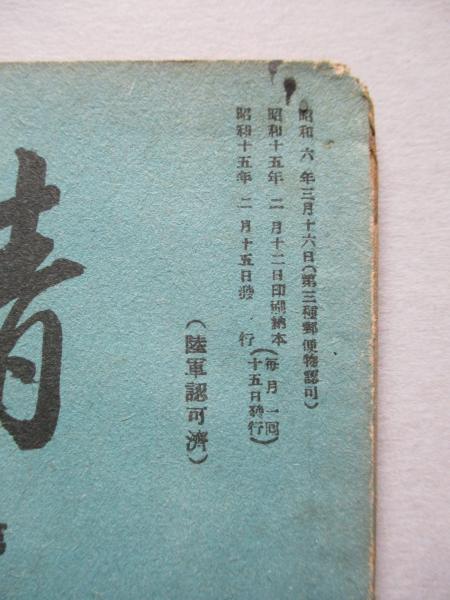 昭和六年三月十六日(第三種郵便物認可)
昭和十五年二月十二日印刷納本
昭和十五年二月十五日發行
(毎月一回
十五日發行)
(陸軍認可濟)